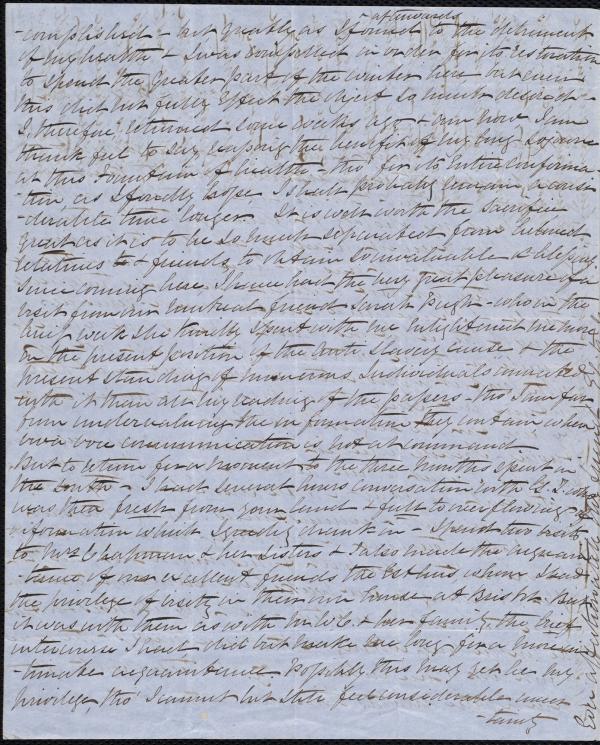 afterwards
-complished - but greatly as I found to the detriment
of my health & I was compelled in order for its restoration
to spend the greater part of the winter here but even
this did not fully effect the object so much desired -
I therefore returned some weeks ago & am now I am
thankful to say reaping the benefit of my long sojourn
at this fountain of health - tho' for its entire confirma-
tion as I fondly hope I shall probably remain a consi
-derable time longer It is well worth the sacrifice
great as it is to be so much separated from beloved
relatives & friends to obtain so invaluable a blessing
Since coming here I have had the very great pleasure of a
visit from our mutual friend Sarah Pugh - who in the
one week she kindly spent with me enlightened me more
on the present position of the Anti-Slavery cause & the
present standing of numerous individuals connected
with it than all my reading of the papers - tho' I am far
from undervaluing the information they contain when
viva voce communication is not at command
But to return for a moment to the three months spent in
the South - I had several hours conversation with G. T. who
was then fresh from your land & full to overflowing of
information which I greedily drank in - I paid two visits
to Mrs Chapman & her Sisters & I also made the acquain
-tance of our excellent friends the Estlins whom I had
the privilege of visiting in their own house at Bristol - But
it was with them as with Mrs C. & her family the brief
intercourse I had did but make me long for a more in
-timate acquaintance Possibly this may yet be my
privilege, tho' I cannot but still feel considerable uncer
-tainty